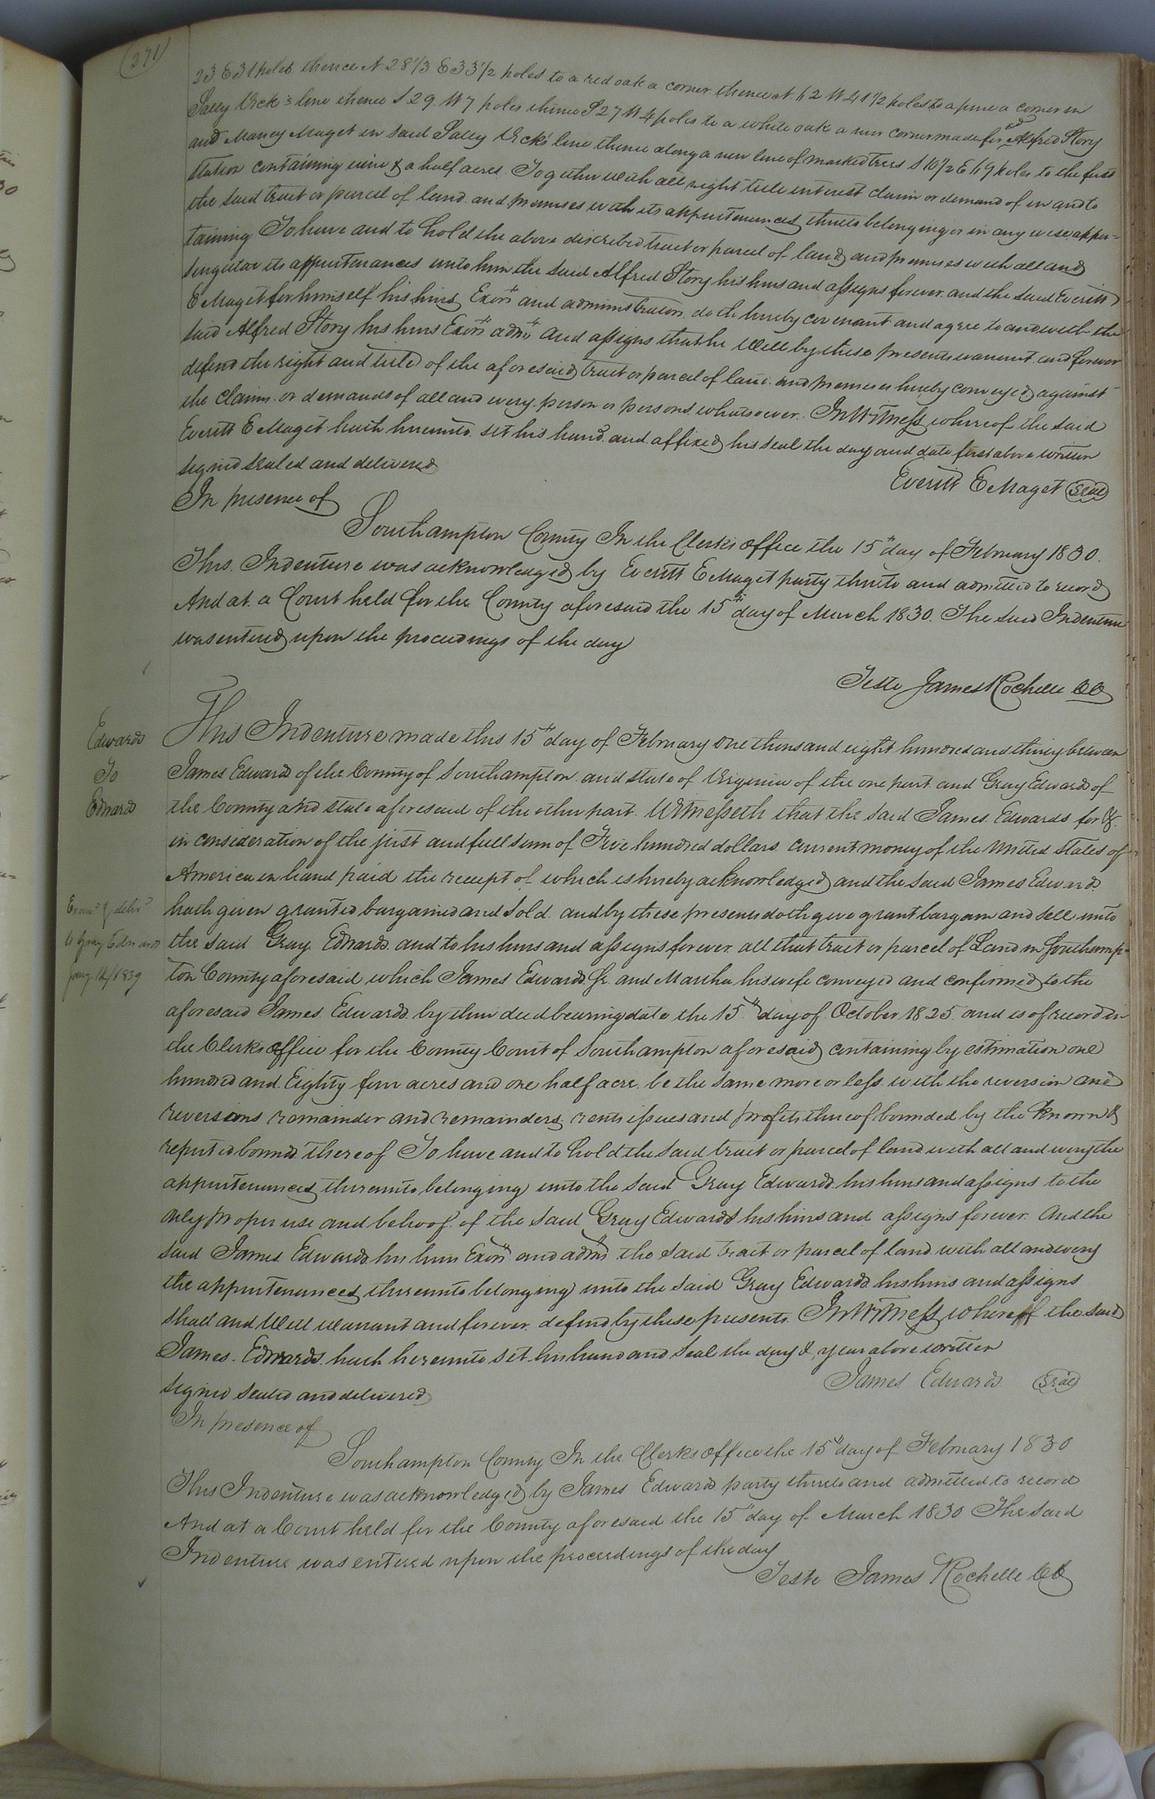 271
23 E 31 poles thence N 28 1/3 E 33 1/2 poles to a red oak a corner thence N 62 W 41 1/2 poles to a pine a corner in
Sally Vick's line thence S 29 W 7 poles thence S 27 W 4 poles to a white oak a new corner made for sd Alfred Story
and Nancy Maget in said Sally Vick's line thence along a new line of marked trees S 10 1/2 E 69 poles to the first
station containing nine & a half acres. Together with all right title interest claim or demand of in and to
the said tract or parcel of land and premises with its appurtenances thereto belonging or in any wise apper-
taining To have and to hold the above discribed tract or parcel of land and premises with all and
singular its appurtenances unto him the said Alfred Story his heirs and assigns forever and the said Everitt
E Maget for himself his heirs Exors and administrators, doth hereby covenant and agree to and with the
said Alfred Story his heirs Exors admrs and assigns that he will by these presents warrant and forever
defend the right and title of the aforesaid tract or parcel of land and premises hereby conveyed against
the claims or demands of all and every person or persons whatsoever. In Witness whereof the said
Everitt E Maget hath hereunto set his hand and affixed his seal the day and date first above written
signed sealed and delivered
Everitt E Maget Seal
In presence of
Southampton County In the Clerks office the 15th day of February 1830.
This Indenture was acknowledged by Everitt E Maget party thereto and admitted to record
And at a Court held for the County aforesaid the 15th day of March 1830. The said Indenture
was entered upon the proceedings of the day
Teste James Rochelle CC
Edwards
To
Edwards
This Indenture made this 15th day of February one thousand eight hundred and thirty between
James Edwards of the County of Southampton and state of Virginia of the one part and Gray Edwards of
the County and state aforesaid of the other part. Witnesseth that the said James Edwards for &
in consideration of the just and full sum of Five hundred dollars current money of the United States of
America in hand paid the receipt of which is hereby acknowledged and the said James Edwards
Examd & delivd
to Gray Edwards
Jany 14/1839
hath given granted bargained and sold and by these presents doth give grant bargain and sell unto
the said Gray Edwards and to his heirs and assigns forever all that tract or parcel of Land in Southamp-
ton County aforesaid which James Edwards Jr. and Martha his wife conveyed and confirmed to the
aforesaid James Edwards by their deed bearing date the 15th day of October 1825 and is of record in
the Clerks office for the County Court of Southampton aforesaid containing by estimation one
hundred and Eighty four acres and one half acre be the same more or less with the reversion and
reversions remainder and remainders rents issues and profits thereof bounded by the known &
reputed bounds thereof To have and to hold the said tract or parcel of land with all and every the
appurtenances thereunto belonging unto the said Gray Edwards his heirs and assigns to the
only proper use and behoof of the said Gray Edwards his heirs and assigns forever. And the
said James Edwards his heirs Exors and admrs the said tract or parcel of land with all and every
the appurtenances thereunto belonging unto the said Gray Edwards his heirs and assigns
shall and will warrant and forever defend by these presents. In Witness whereof the said
James Edwards hath hereunto set his hand and seal the day & year above written
signed sealed and delivered
James Edwards Seal
In presence of
Southampton County In the Clerks office the 15th day of February 1830
This Indenture was acknowledged by James Edwards party thereto and admitted to record
And at a Court held for the County aforesaid the 15th day of March 1830 The said
Indenture was entered upon the proceedings of the day
Teste James Rochelle CC